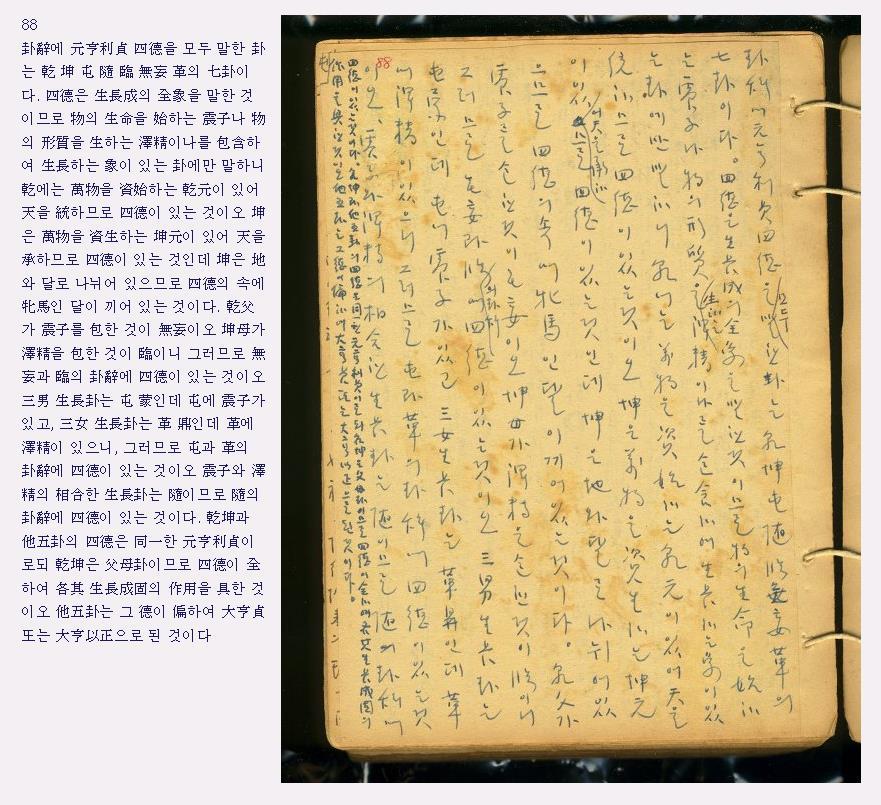 88
卦辭에 元亨利貞 四德을 모두 말한 卦
는 乾 坤 屯 隨 臨 無妄 革의 七卦이
다. 四德은 生長成의 全象을 말한 것
이므로 物의 生命을 始하는 震子나 物
의 形質을 生하는 澤精이나를 包含하
여 生長하는 象이 있는 卦에만 말하니
乾에는 萬物을 資始하는 乾元이 있어
天을 統하므로 四德이 있는 것이오 坤
은 萬物을 資生하는 坤元이 있어 天을
承하므로 四德이 있는 것인데 坤은 地
와 달로 나뉘어 있으므로 四德의 속에
牝馬인 달이 끼어 있는 것이다. 乾父
가 震子를 包한 것이 無妄이오 坤母가
澤精을 包한 것이 臨이니 그러므로 無
妄과 臨의 卦辭에 四德이 있는 것이오
三男 生長卦는 屯 蒙인데 屯에 震子가
있고, 三女 生長卦는 革 鼎인데 革에
澤精이 있으니, 그러므로 屯과 革의
卦辭에 四德이 있는 것이오 震子와 澤
精의 相合한 生長卦는 隨이므로 隨의
卦辭에 四德이 있는 것이다. 乾坤과
他五卦의 四德은 同一한 元亨利貞이
로되 乾坤은 父母卦이므로 四德이 全
하여 各其 生長成固의 作用을 具한 것
이오 他五卦는 그 德이 偏하여 大亨貞
또는 大亨以正으로 된 것이다
88
卦辭에 元亨利貞 四德을 모두 말한 卦는 乾坤屯隨臨無妄革의
七卦이다。四德은 生長成의 全象을 말한 것이므로 物의 生命을 始하
는 震子나 物의 形質을 生하는 澤精이나를 包含하여 生長하는 象이 있
는 卦에만 말하니 乾에는 萬物을 資始하는 乾元이 있어 天을
統하므로 四德이 있는 것이오 坤은 萬物을 資生하는 坤元
이 있어 天을 承하므로 四德이 있는 것인데 坤은 地와 달로 나뉘어 있
으므로 四德의 속에 牝馬인 달이 끼어 있는 것이다。乾父가
震子를 包한 것이 無妄이오 坤母가 澤精을 包한 것이 臨이니
그러므로 無妄과 臨의 卦辭에 四德이 있는 것이오 三男 生長卦는
屯蒙인데 屯에 震子가 있고 三女 生長卦는 革鼎인데 革
에 澤精이 있으니 그러므로 屯과 革의 卦辭에 四德이 있는 것
이오 震子와 澤精의 相合한 生長卦는 隨이므로 隨의 卦辭에
四德이 있는 것이다。乾坤과 他五卦의 四德은 同一한 元亨利貞이로되 乾坤은 父母卦이므로 四德이 全하여 各其 生長成固의
作用을 具한 것이오 他五卦는 그 德이 偏하여 大亨貞 또는 大亨以正으로 된 것이다。